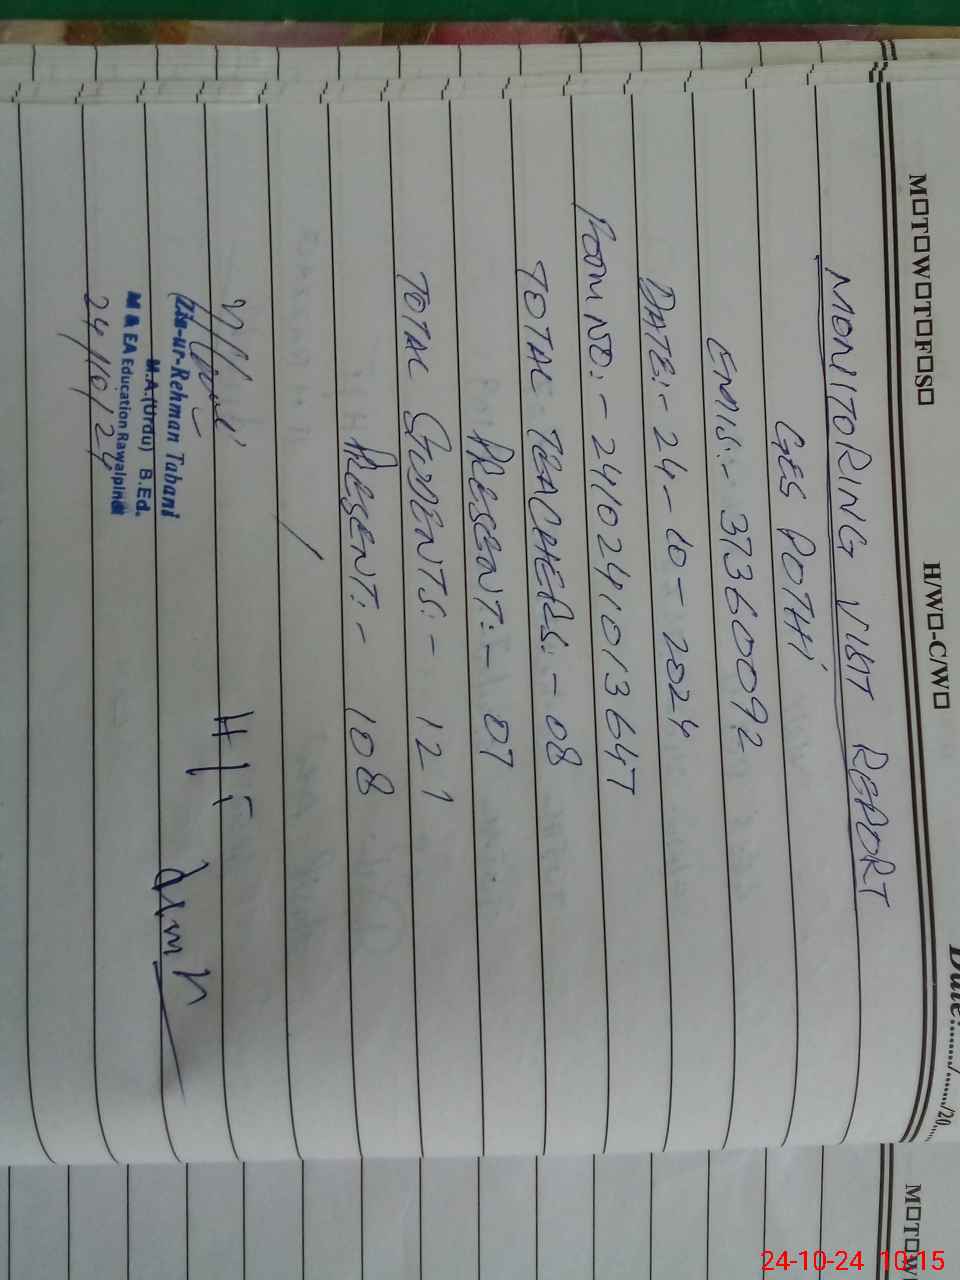 M☐T☐W☐T☐F☐S☐ H/W☐-C/W☐ Date:....../....../20.....
MONITORING VISIT REPORT
GES POTHI
EMIS:- 37360092
DATE:- 24-10-2024
TOTAL TEACHERS:- 08
PRESENT:- 07
TOTAL STUDENTS:- 121
PRESENT:- 108
H/T
Zia-ur-Rehman Tabani
M.A.(Urdu) B.Ed.
M & EA Education Rawalpindi
24/10/24
M☐T☐W
24-10-24 10:15